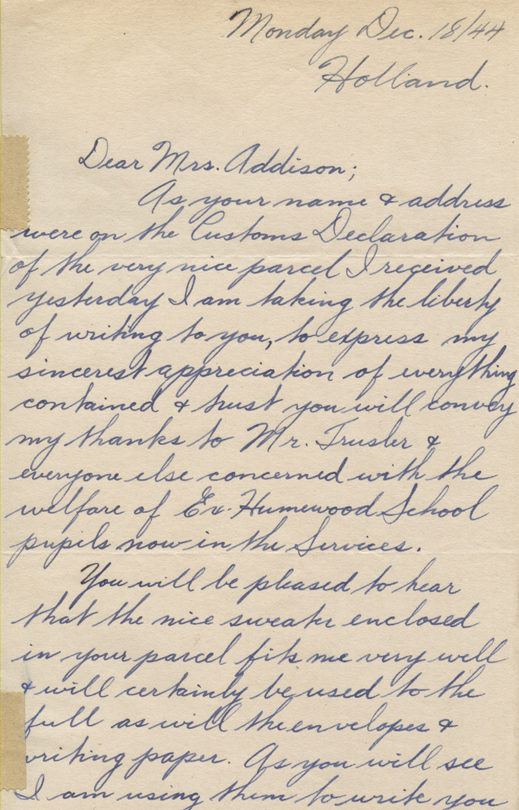 Monday Dec. 18/44
Holland.
Dear Mrs. Addison;
As your name & address
were on the Customs Declaration
of the very nice parcel I received
yesterday I am taking the liberty
of writing to you, to express my
sincerest appreciation of everything
contained & trust you will convey
my thanks to Mr. Trusler &
everyone else concerned with the
welfare of Ex-Humewood School
pupils now in the Services.
You will be pleased to hear
that the nice sweater enclosed
in your parcel fits me very well
& will certainly be used to the
full as will the envelopes &
writing paper. As you will see
I am using them to write you